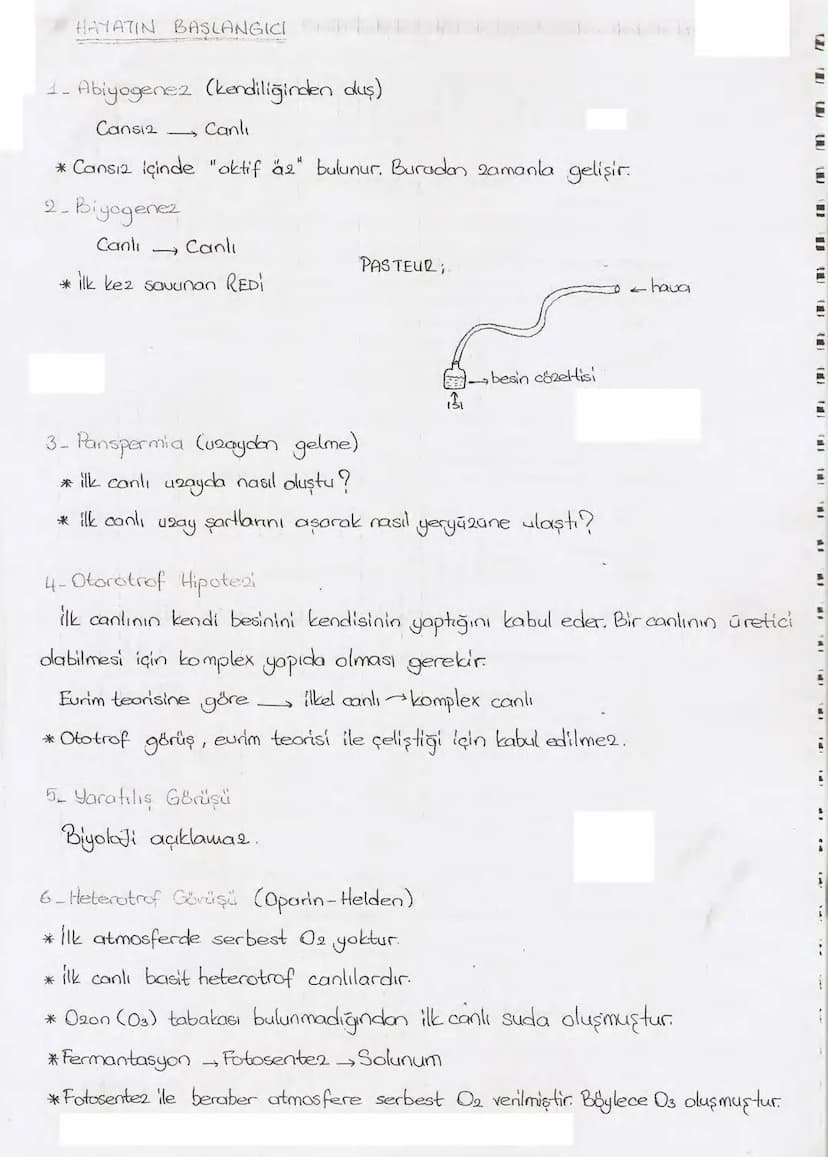 HAYATIN BAŞLANGICI
1- Abiyogenez (kendiliğinden oluş)
Cansız → Canlı
* Cansız içinde "aktif öz" bulunur. Buradan zamanla gelişir.
2- Biyogenez
Canlı → Canlı
* İlk kez savunan REDİ
PASTEUR;
← hava
→ besin çözeltisi
↑
ısı
3- Panspermia (uzaydan gelme)
* İlk canlı uzayda nasıl oluştu?
* İlk canlı uzay şartlarını aşarak nasıl yeryüzüne ulaştı?
4- Otorotrof Hipotezi
İlk canlının kendi besinini kendisinin yaptığını kabul eder. Bir canlının üretici
olabilmesi için komplex yapıda olması gerekir.
Evrim teorisine göre → ilkel canlı → komplex canlı
* Ototrof görüş, evrim teorisi ile çeliştiği için kabul edilmez.
5- Yaratılış Görüşü
Biyoloji açıklamaz.
6- Heterotrof Görüşü (Oparin-Helden)
* İlk atmosferde serbest O2 yoktur.
* İlk canlı basit heterotrof canlılardır.
* Ozon (O3) tabakası bulunmadığından ilk canlı suda oluşmuştur.
* Fermantasyon → Fotosentez → Solunum
* Fotosentez ile beraber atmosfere serbest O2 verilmiştir. Böylece O3 oluşmuştur.